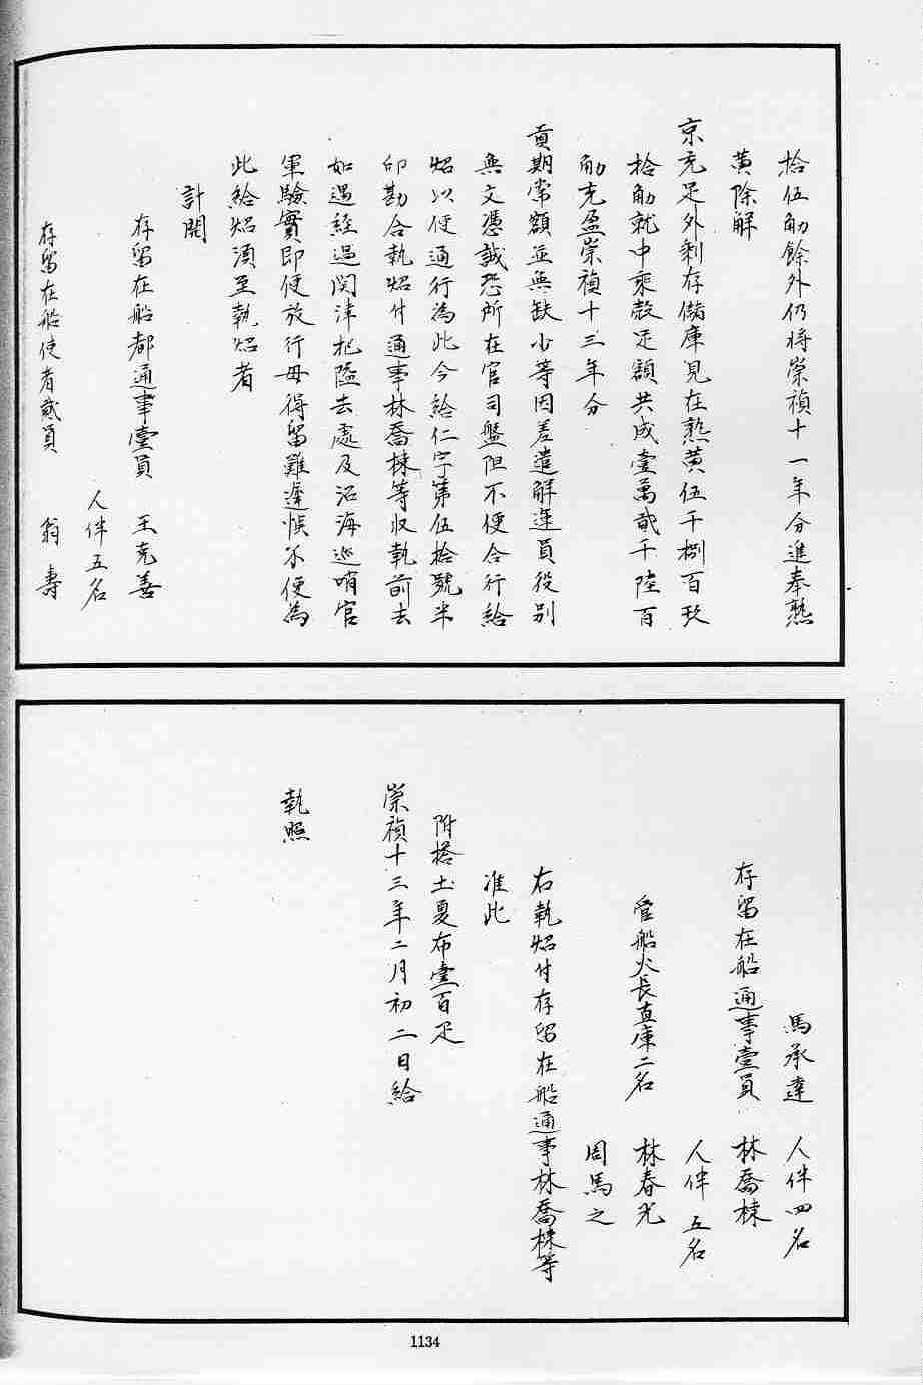 拾伍觔餘外仍將崇禎十一年分進奉熟
黃除解
京充足外剩存儲庫見在熟黃伍千捌百玖
拾觔就中乘殼足額共成壹萬貳千陸百
觔充盈崇禎十三年分
貢期常額並無缺少等因差遣解運員役別
無文憑誠恐所在官司盤阻不便合行給
炤以便通行為此今給仁字第伍拾號半
印勘合執炤付通事林喬棟等收執前去
如遇經過関津把隘去處及沿海巡哨官
軍驗實即便放行毋得留難遲悞不便為
此給炤須至執炤者
計開
存留在船都通事壹員　王克善
人伴五名
存留在船使者貳員　翁壽
馬承達　人伴四名
存留在船通事壹員　林喬棟
人伴五名
管船火長直庫二名　林春光
周馬之
右執炤付存留在船通事林喬棟等
准此
附搭土夏布壹百疋
崇禎十三年二月初二日給
執照
1134